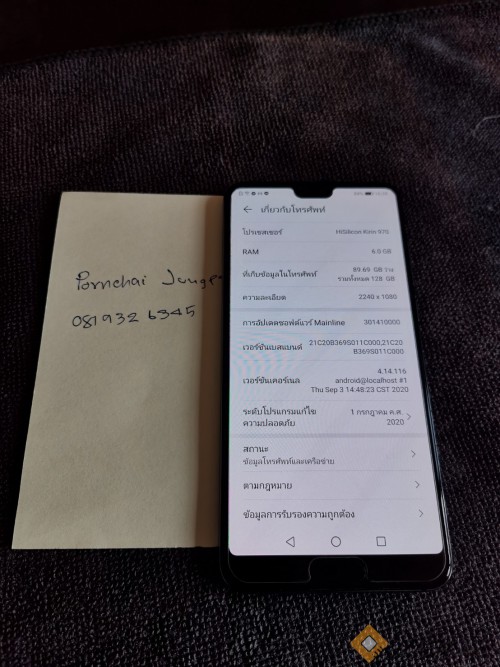 Pornchai
081932 6345
เกี่ยวกับโทรศัพท์
โปรเซสเซอร์ HiSilicon Kirin 970
RAM 6.0 GB
ที่เก็บข้อมูลในโทรศัพท์ 89.69 GB ว่าง
รวมทั้งหมด 128 GB
ความละเอียด 2240 x 1080
การอัปเดตซอฟต์แวร์ Mainline 301410000
เวอร์ชันเบสแบนด์ 21C20B369S011C000,21C20
B369S011C000
เวอร์ชันเคอร์เนล 4.14.116
android@localhost #1
Thu Sep 3 14:48:23 CST 2020
ระดับโปรแกรมแก้ไข
ความปลอดภัย 1 กรกฎาคม ค.ศ.
2020
สถานะ
ข้อมูลโทรศัพท์และเครือข่าย
ตามกฎหมาย
ข้อมูลการรับรองความถูกต้อง